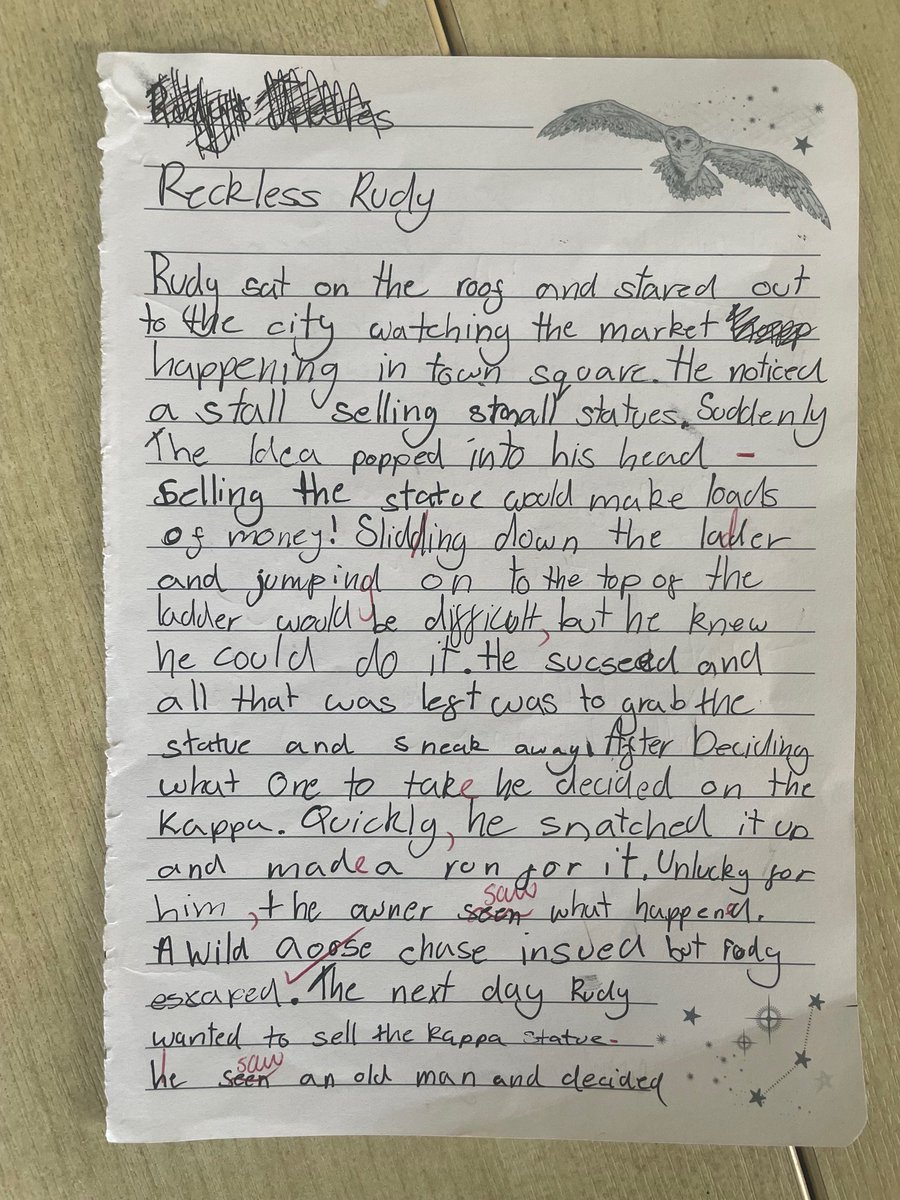 Reckless Rudy
Rudy sat on the roof and stared out
to the city watching the market
happening in town square. He noticed
a stall selling small statues. Suddenly
The Idea popped into his head -
Selling the statue would make loads
of money! Slidding down the ladder
and jumping on to the top of the
ladder would be difficult, but he knew
he could do it. He sucseed and
all that was left was to grab the
statue and sneak away. After Deciding
what One to take he decided on the
Kappa. Quickly, he snatched it up
and made a run for it. Unlucky for
saw
him, the owner seen what happend.
A Wild Goose chase insued but Rudy
escaped. The next day Rudy
wanted to sell the Kappa statue.
saw
he seen an old man and decided